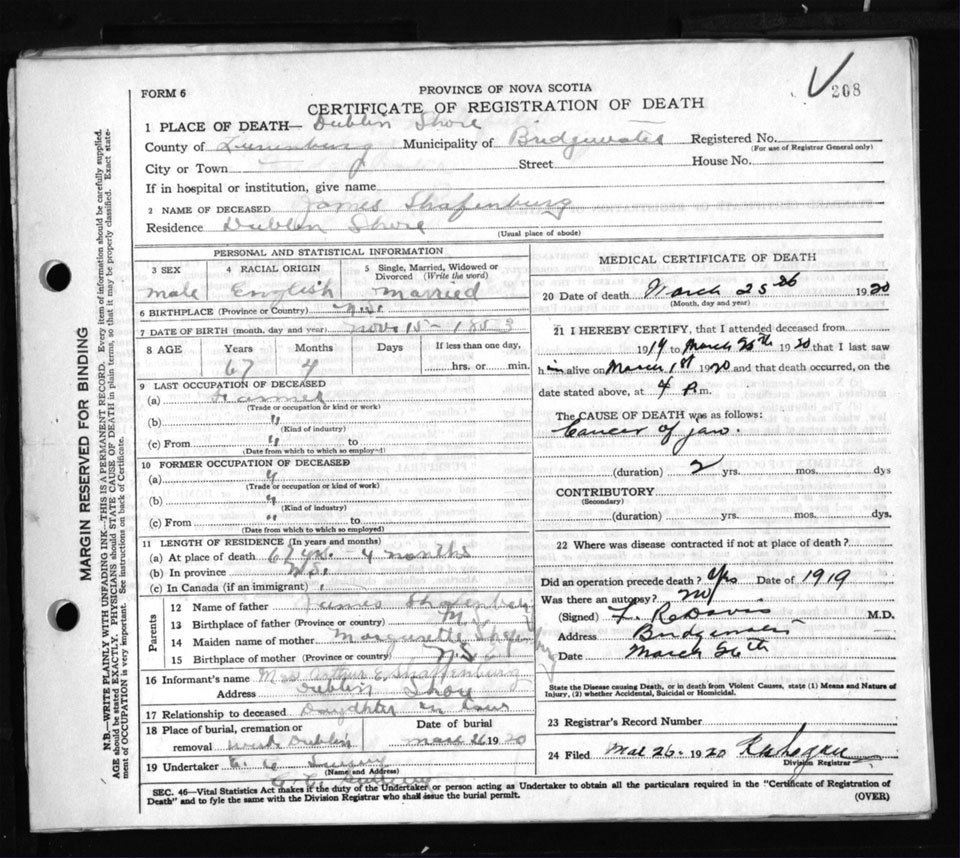 208
FORM 6
PROVINCE OF NOVA SCOTIA
CERTIFICATE OF REGISTRATION OF DEATH
1 PLACE OF DEATH— Dublin Shore
County of Lunenburg Municipality of Bridgewater Registered No.
(For use of Registrar General only)
City or Town Street House No.
If in hospital or institution, give name
2 NAME OF DECEASED James Shafenburg
Residence Dublin Shore
(Usual place of abode)
PERSONAL AND STATISTICAL INFORMATION
3 SEX 4 RACIAL ORIGIN 5 Single, Married, Widowed or Divorced (Write the word)
male English married
6 BIRTHPLACE (Province or Country) N.S.
7 DATE OF BIRTH (month, day and year) Nov 15 - 1853
8 AGE Years Months Days If less than one day,
67 4 hrs. or min.
9 LAST OCCUPATION OF DECEASED
(a) Farmer
(Trade or occupation or kind or work)
(b) "
(Kind of industry)
(c) From " to
(Date from which to which so employed)
10 FORMER OCCUPATION OF DECEASED
(a) "
(Trade or occupation or kind of work)
(b) "
(Kind of industry)
(c) From " to
(Date from which to which so employed)
11 LENGTH OF RESIDENCE (In years and months)
(a) At place of death 67 yrs. - 4 months
(b) In province N.S.
(c) In Canada (if an immigrant)
Parents
12 Name of father James Shafenburg
13 Birthplace of father (Province or country) N.S.
14 Maiden name of mother Margurette Shafenburg
15 Birthplace of mother (Province or country) N.S.
16 Informant's name Mrs Arthur E. Shaffenburg
Address Dublin Shore
17 Relationship to deceased Daughter in Law
18 Place of burial, cremation or removal West Dublin Date of burial Mar 26 1920
19 Undertaker E. C.
(Name and Address)
MEDICAL CERTIFICATE OF DEATH
20 Date of death March 25 26 1920
(Month, day and year)
21 I HEREBY CERTIFY, that I attended deceased from
1919 to March 26th 1920 that I last saw
him alive on March 1st 1920 and that death occurred, on the
date stated above, at 4 P.m.
The CAUSE OF DEATH was as follows:
Cancer of jaw.
(duration) 2 yrs. mos. dys
CONTRIBUTORY
(Secondary)
(duration) yrs. mos. dys.
22 Where was disease contracted if not at place of death?
Did an operation precede death? Yes Date of 1919
Was there an autopsy? no
(Signed) F. R. Davis M.D.
Address Bridgewater
Date March 26th
State the Disease causing Death, or in death from Violent Causes, state (1) Means and Nature of
Injury, (2) whether Accidental, Suicidal or Homicidal.
23 Registrar's Record Number
24 Filed Mar 26. 1920
Division Registrar
SEC. 46—Vital Statistics Act makes it the duty of the Undertaker or person acting as Undertaker to obtain all the particulars required in the "Certificate of Registration of
Death" and to fyle the same with the Division Registrar who shall issue the burial permit. (OVER)
MARGIN RESERVED FOR BINDING
N.B.—WRITE PLAINLY WITH UNFADING INK—THIS IS A PERMANENT RECORD. Every item of information should be carefully supplied.
AGE should be stated EXACTLY. PHYSICIANS should STATE CAUSE OF DEATH in plain terms, so that it may be properly classified. Exact state-
ment of OCCUPATION is very important. See instructions on back of Certificate.